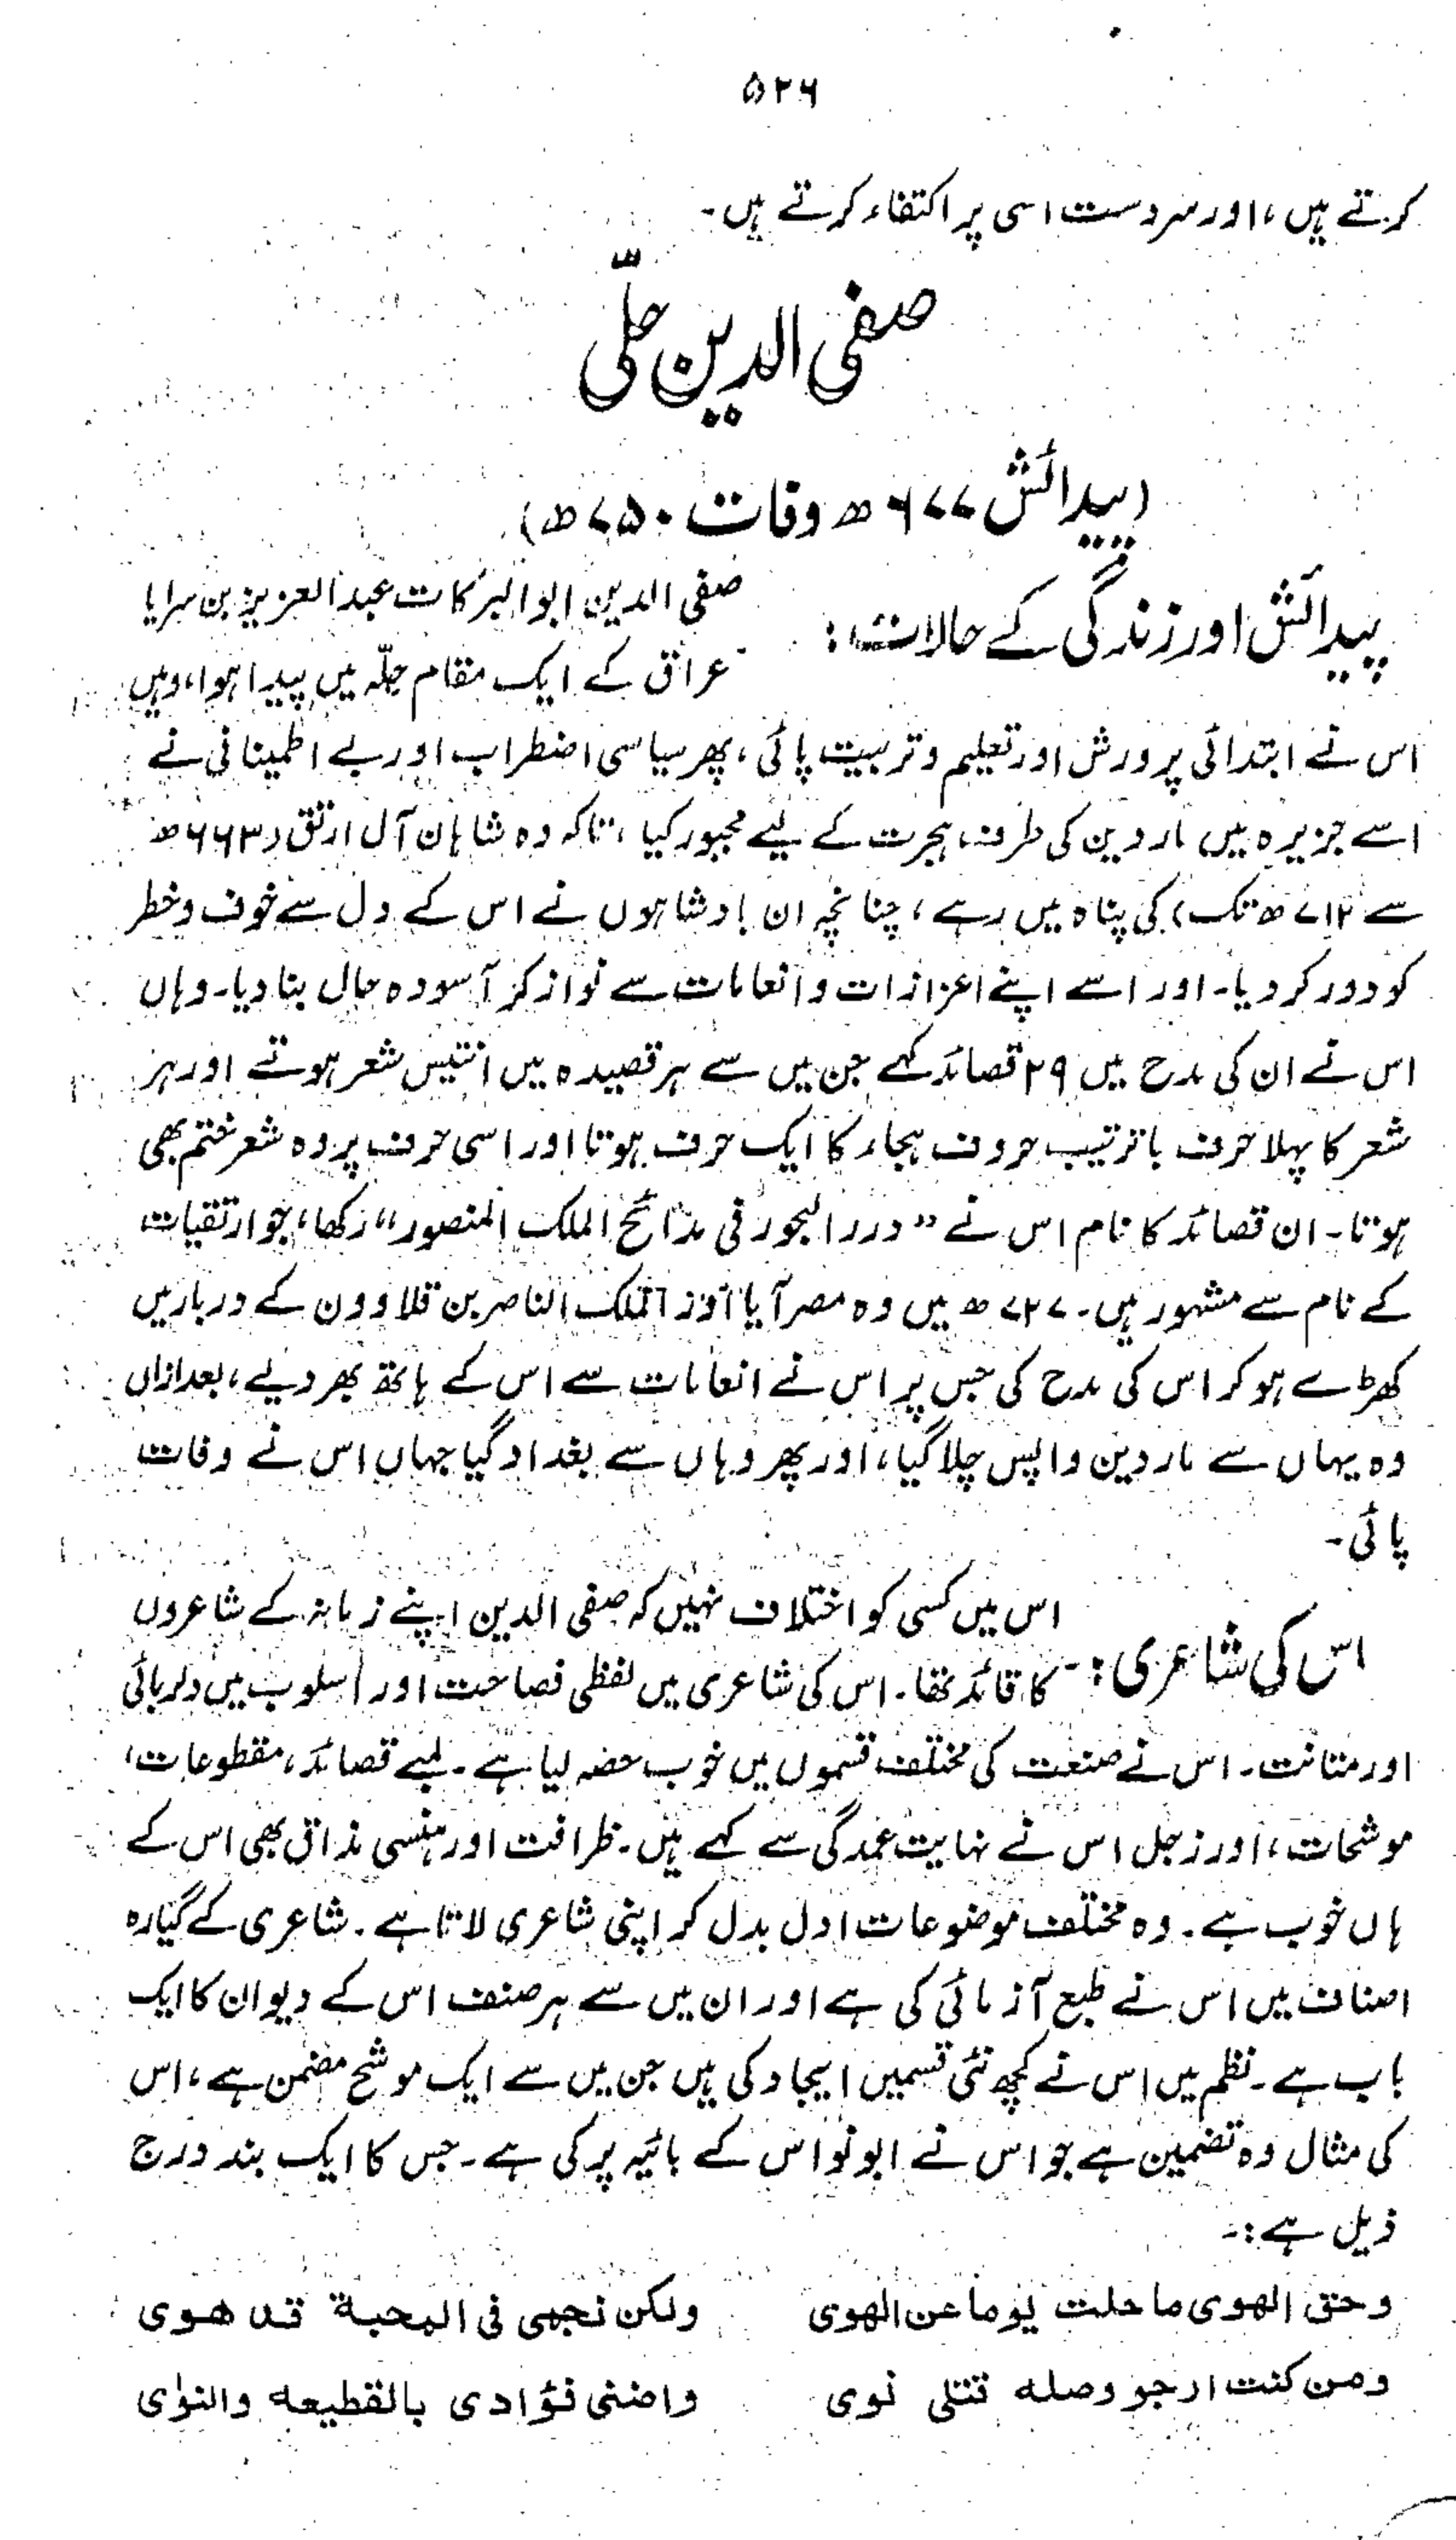 ۵۲۶
کرتے ہیں، اور سردست اسی پر اکتفاء کرتے ہیں۔
صفی الدین حلّی
(پیدائش ۶۷۷ھ وفات ۷۵۰ھ)
پیدائش اور زندگی کے حالات: صفی الدین ابوالبرکات عبدالعزیز بن سرایا
عراق کے ایک مقام حلّہ میں پیدا ہوا، وہیں
اس نے ابتدائی پرورش اور تعلیم و تربیت پائی، پھر سیاسی اضطراب اور بے اطمینانی نے
اسے جزیرہ میں ماردین کی طرف ہجرت کے لیے مجبور کیا، تاکہ وہ شاہان آل ارتق (۶۶۳ھ
سے ۷۱۲ھ تک) کی پناہ میں رہے، چنانچہ ان بادشاہوں نے اس کے دل سے خوف و خطر
کو دور کر دیا۔ اور اسے اپنے اعزازات و انعامات سے نواز کر آسودہ حال بنا دیا۔ وہاں
اس نے ان کی مدح میں ۲۹ قصائد کہے جن میں سے ہر قصیدہ میں انتیس شعر ہوتے اور ہر
شعر کا پہلا حرف با ترتیب حروف ہجاء کا ایک حرف ہوتا اور اسی حرف پر وہ شعر ختم بھی
ہوتا۔ ان قصائد کا نام اس نے ”درر البحور فی مدائح الملک المنصور“ رکھا، جو ارتقیات
کے نام سے مشہور ہیں۔ ۷۲۷ھ میں وہ مصر آیا اور الملک الناصر بن قلاوون کے دربار میں
کھڑے ہو کر اس کی مدح کی جس پر اس نے انعامات سے اس کے ہاتھ بھر دیے، بعد ازاں
وہ یہاں سے ماردین واپس چلا گیا، اور پھر وہاں سے بغداد گیا جہاں اس نے وفات
پائی۔
اس کی شاعری:۔ اس میں کسی کو اختلاف نہیں کہ صفی الدین اپنے زمانہ کے شاعروں
کا قائد تھا۔ اس کی شاعری میں لفظی فصاحت اور اسلوب میں دلربائی
اور متانت۔ اس نے صنعت کی مختلف قسموں میں خوب حصہ لیا ہے۔ لمبے قصائد، مقطوعات،
موشحات، اور زجل اس نے نہایت عمدگی سے کہے ہیں۔ ظرافت اور ہنسی مذاق بھی اس کے
ہاں خوب ہے۔ وہ مختلف موضوعات ادل بدل کر اپنی شاعری لاتا ہے۔ شاعری کے گیارہ
اصناف میں اس نے طبع آزمائی کی ہے اور ان میں سے ہر صنف اس کے دیوان کا ایک
باب ہے۔ نظم میں اس نے کچھ نئی قسمیں ایجاد کی ہیں جن میں سے ایک موشح مضمن ہے، اس
کی مثال وہ تضمین ہے جو اس نے ابو نواس کے بائیہ پر کی ہے۔ جس کا ایک بند درج
ذیل ہے:۔
وحق الهوى ما حلت يوما عن الهوى ولكن نجمى فى المحبة قد هوى
ومن كنت ارجو وصله قتلى نوى واضنى فؤادى بالقطيعه والنوى